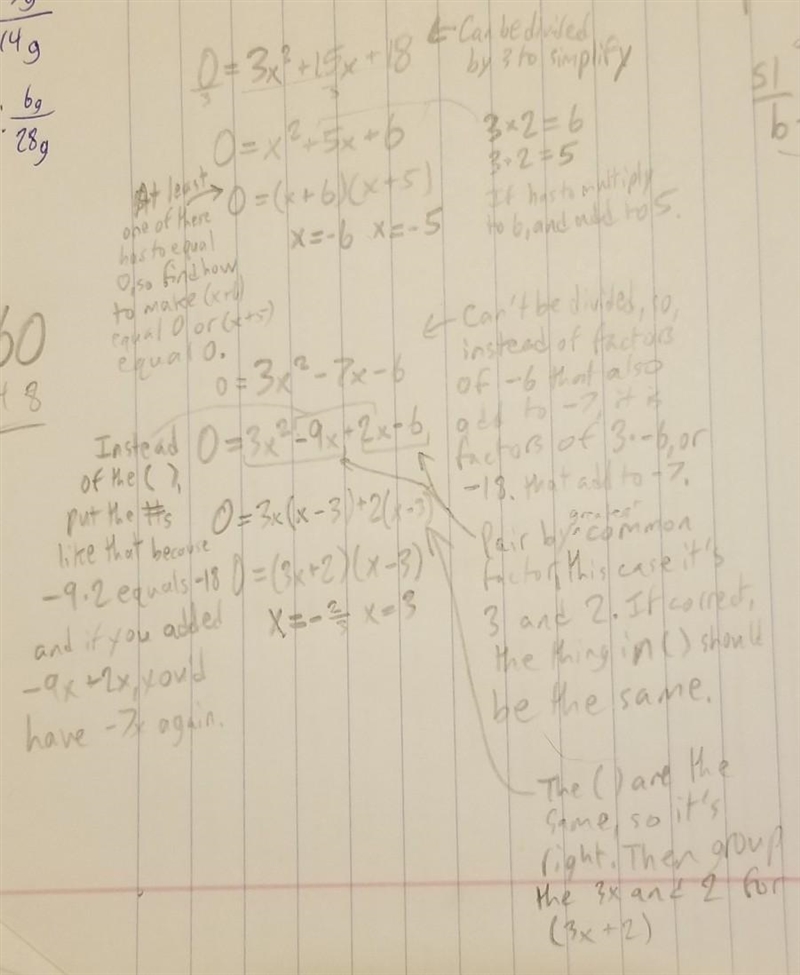 14g
6g
28g
0/3 = 3x² + 15x/3 + 18
← Can be divided
by 3 to simplify
0 = x² + 5x + 6
3 × 2 = 6
3 + 2 = 5
It has to multiply
to 6, and add to 5.
0 = (x + 6)(x + 5)
x = -6 x = -5
At least
one of these
has to equal
0, so find how
to make (x+6)
equal 0 or (x+5)
equal 0.
51
b
60
8
0 = 3x² - 7x - 6
← Can't be divided, so,
instead of factors
of -6 that also
add to -7, it is
factors of 3·-6, or
-18. that add to -7.
0 = 3x² - 9x + 2x - 6
0 = 3x(x - 3) + 2(x - 3)
0 = (3x + 2)(x - 3)
x = -2/3 x = 3
Instead
of the ( ),
put the #s
like that because
-9·2 equals -18
and if you added
-9x + 2x, you'd
have -7x again.
Pair by greatest common
factor, this case it's
3 and 2. If correct,
the thing in ( ) should
be the same.
The ( ) are the
same, so it's
right. Then group
the 3x and 2 for
(3x + 2)